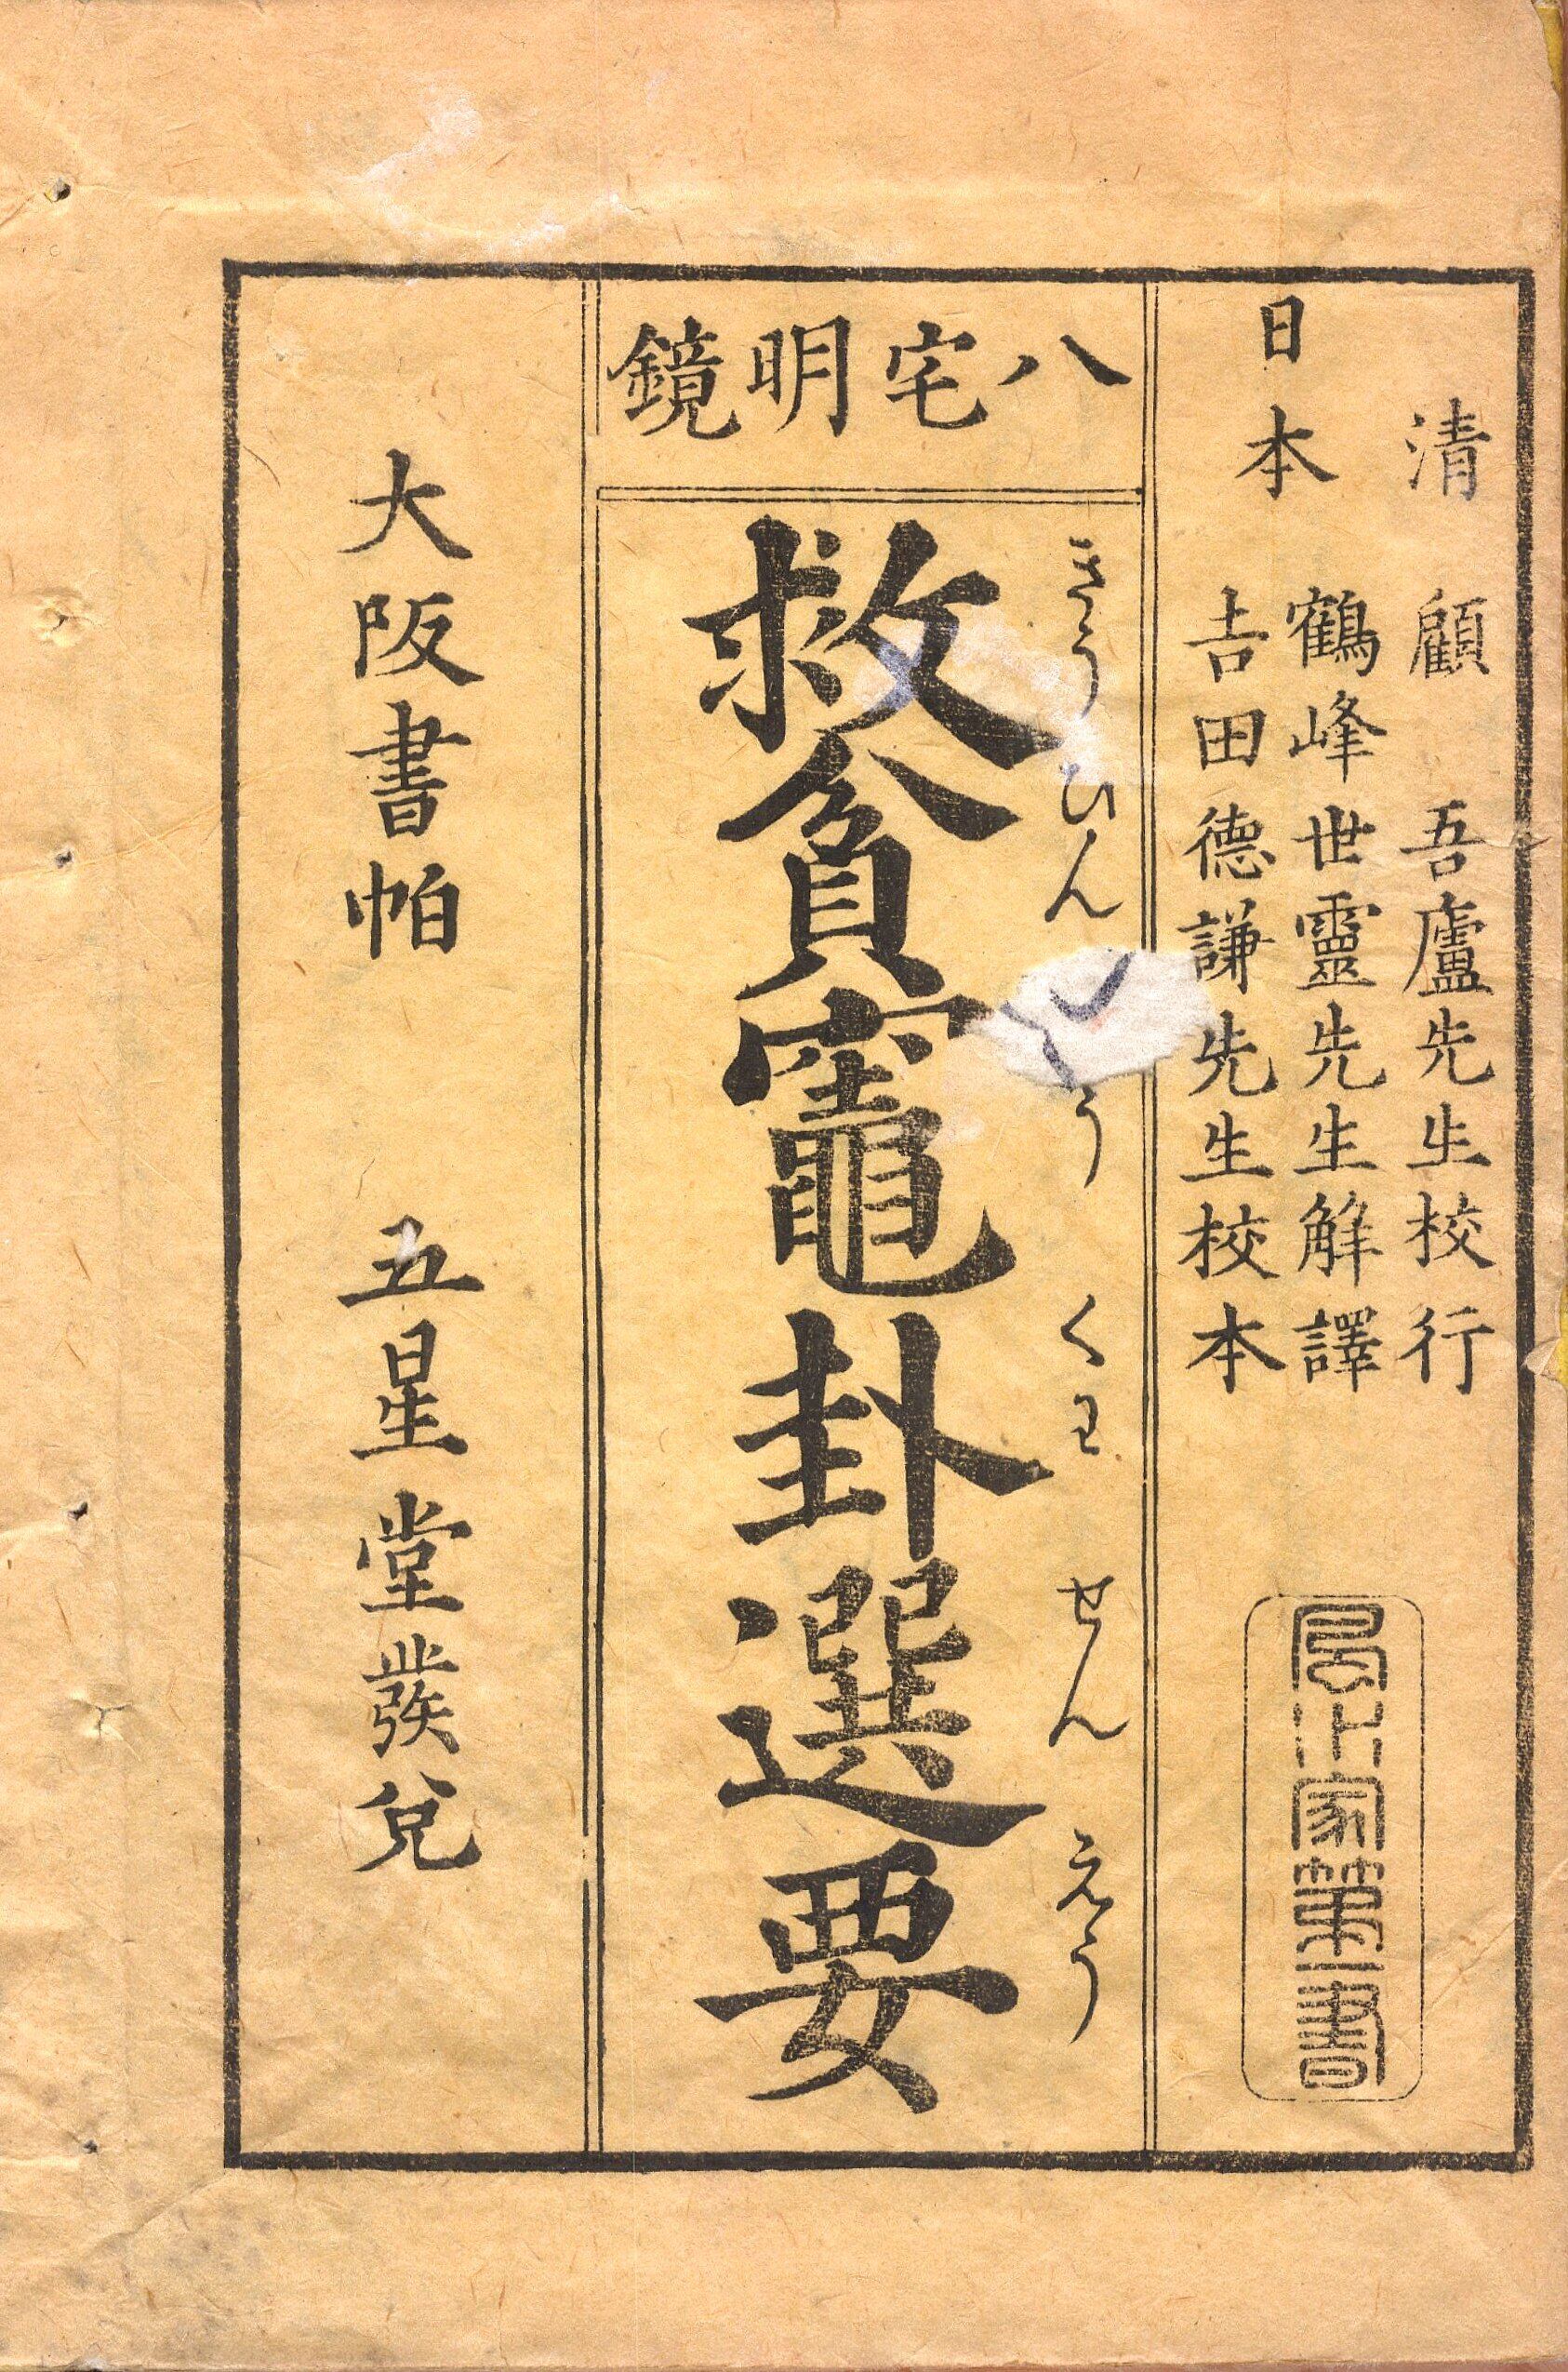 清　顧　吾廬先生校行
日本　鶴峰世靈先生解譯
吉田德謙先生校本
八宅明鏡
きうひん　うくわせんえう
救貧竈卦選要
大阪書帕　五星堂發兌